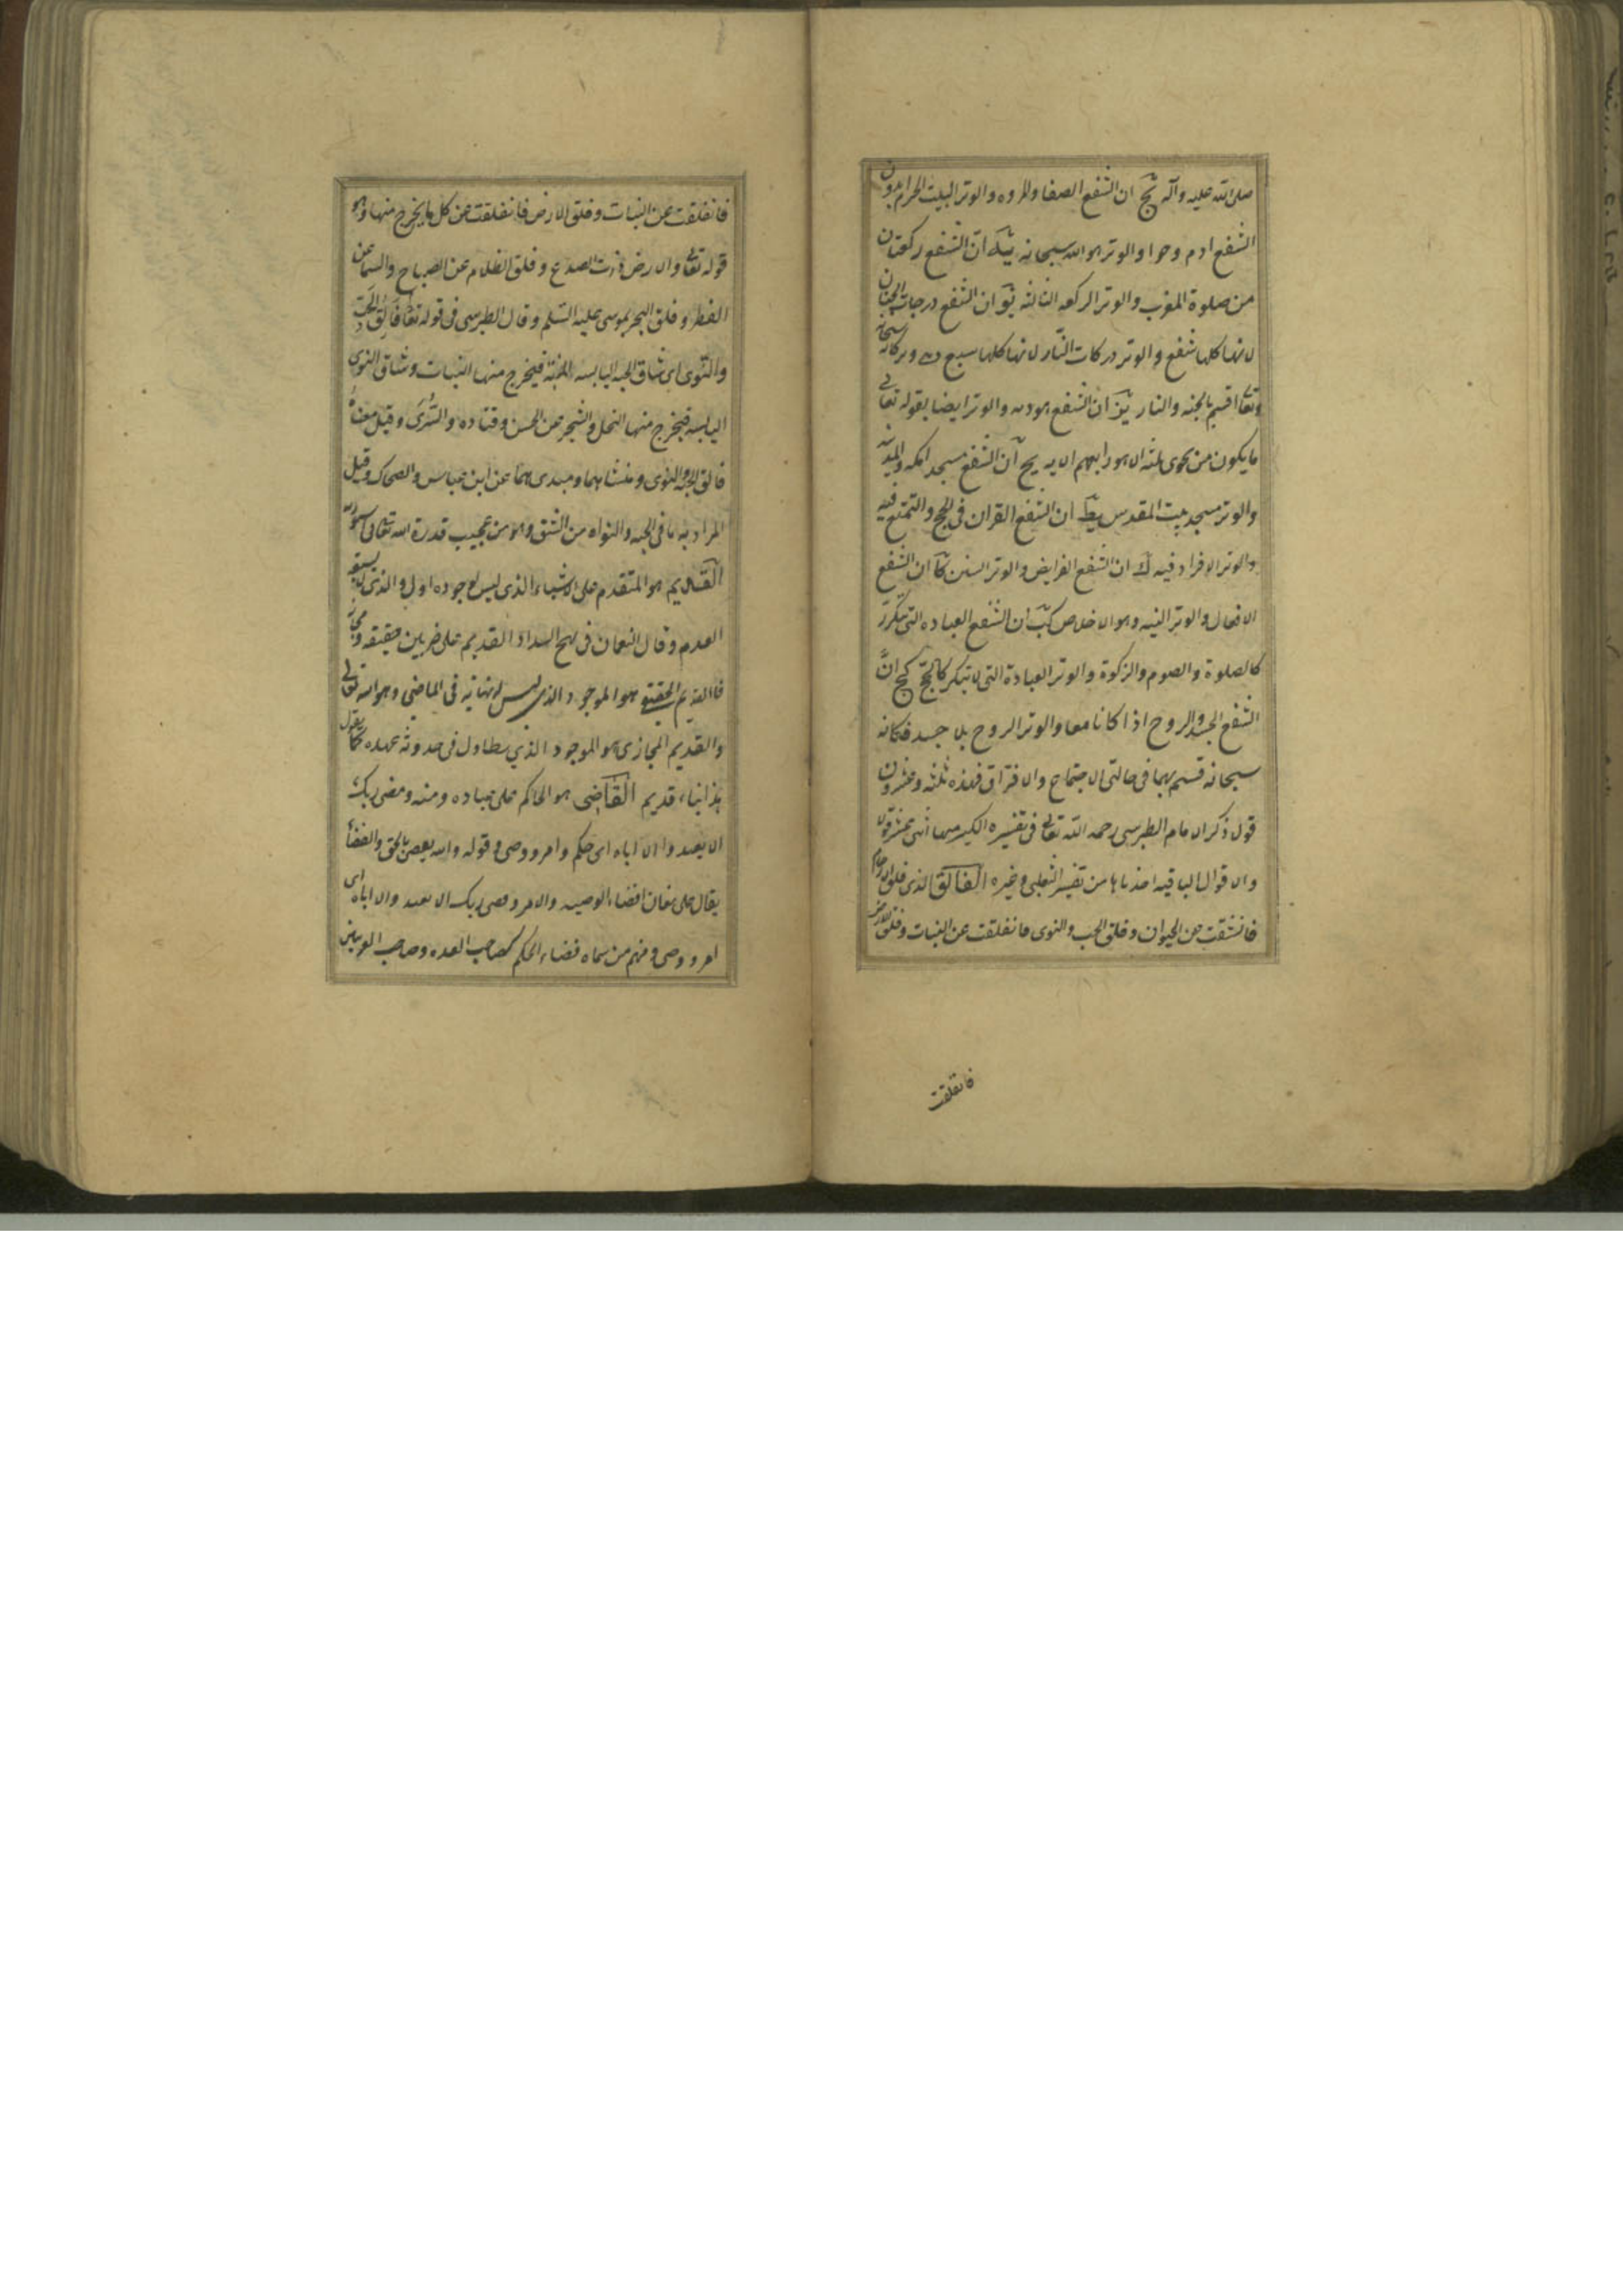 صلى الله عليه وآله يج ان الشفع الصفا والمروه والوتر البيت الحرام يد ان
الشفع ادم وحوا والوتر هو الله سبحانه يه انّ الشفع ركعتان
من صلوة المغرب والوتر الركعه الثالثه يو ان الشفع درجات الجنان
لانها كلها شفع والوتر دركات النّار لانها كلها سبع وكانه سبحانه
وتعا اقسم بالجنه والنار يز ان الشفع هو الله والوتر ايضا بقوله تعالى
ما يكون من نجوى ثلثه الا هو رابعهم الايه يح ان الشفع مسجد امكه والمدينه
والوتر مسجد بيت المقدس يط ان الشفع القران فى الحج والتمتع فيه
والوتر الافراد فيه ك ان الشفع الفرايض والوتر السنن كا ان الشفع
الافعال والوتر النيه وهو الاخلاص كب ان الشفع العباده التى تتكرر
كالصلوة والصوم والزكوة والوتر العبادة التى لا تتكرر كالحج كج انّ
الشفع الجسد والروح اذا كانا معا والوتر الروح بلا جسد فكانه
سبحانه قسم بهما فى حالتى الاجتماع والافتراق فهذه ثلثه وعشرون
قول ذكر الامام الطبرسى رحمه الله تعالى فى تفسيره الكبير منها اثنى عشر قولا
والاقوال الباقيه اخذناها من تفسير الثعلبى وغيره الفالق الذى فلق الارحام
فانشقت عن الحيوان وفلق الحب والنوى فانفلقت عن النبات وفلق الارض
فانفلقت
فانفلقت عن النبات وفلق الارض فانفلقت عن كل ما يخرج منها وهو
قوله تعا والارض ذات الصدع وفلق الظلام عن الصباح والسما عن
القطر وفلق البحر لموسى عليه السّلم وقال الطبرسى فى قوله تعا فالق الحبّ
والنّوى اى شاق الحبه اليابسه الميته فيخرج منها النبات وشاق النوى
اليابسه فيخرج منها النخل والشجر عن الحسن وقتاده والسّدى وقيل معناه
خالق الحبه والنوى ومنشاهما ومبدى هما عن ابن عباس والضحاك وقيل
المراد به ما فى الحبه والنواه من الشق وهو من عجيب قدرة الله تعالى
القديم هو المتقدم على الاشياء الذى ليس لوجوده اول والذى لا يسبقه
العدم وقال النعمان فى نهج السداد القديم على ضربين حقيقه ومجاز
فالقديم الحقيقى هو الموجود الذى ليس لانهايه فى الماضى وهو الله تعالى
والقديم المجازى هو الموجود الذي يتطاول فى حدوثه عهده كما يقول
بناء قديم القاضى هو الحاكم على عباده ومنه وقضى ربك
الا تعبدوا الا اياه اى حكم وامر ووصى وقوله والله يقضى بالحق والقضا
يقال على معان القضاء الوصيه والامر وقضى ربك الا تعبدوا الا اياه اى
امر ووصى ومنهم من سماه قضاء الحكم كصاحب العده وصاحب الغريبين